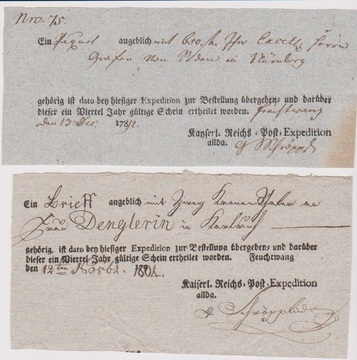 Nro. 75.
Ein Paquet angeblich mit 650. fl. Ihro Excell. Herrn
Grafen von in Nürnberg
gehörig ist dato bey hiesiger Expedition zur Bestellung übergeben, und darüber
dieser ein Viertel Jahr gültige Schein ertheilet worden. Feuchtwang
den 13 Dec. 178
Kayserl. Reichs-Post-Expedition
allda.
Ein Brieff angeblich mit Zwey Kronen Thaler an
Frau Denglerin in
gehörig, ist dato bey hiesiger Expedition zur Bestellung übergeben, und darüber
dieser ein Viertel-Jahr gültige Schein ertheilet worden. Feuchtwang
den 12ten Novbr. 180
Kaiserl. Reichs-Post-Expedition
allda.